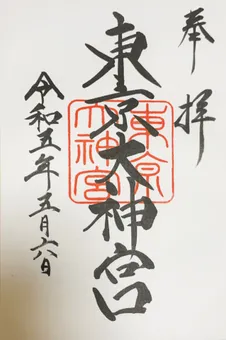 奉拝
東京大神宮
東京
大神宮
令和五年五月六日